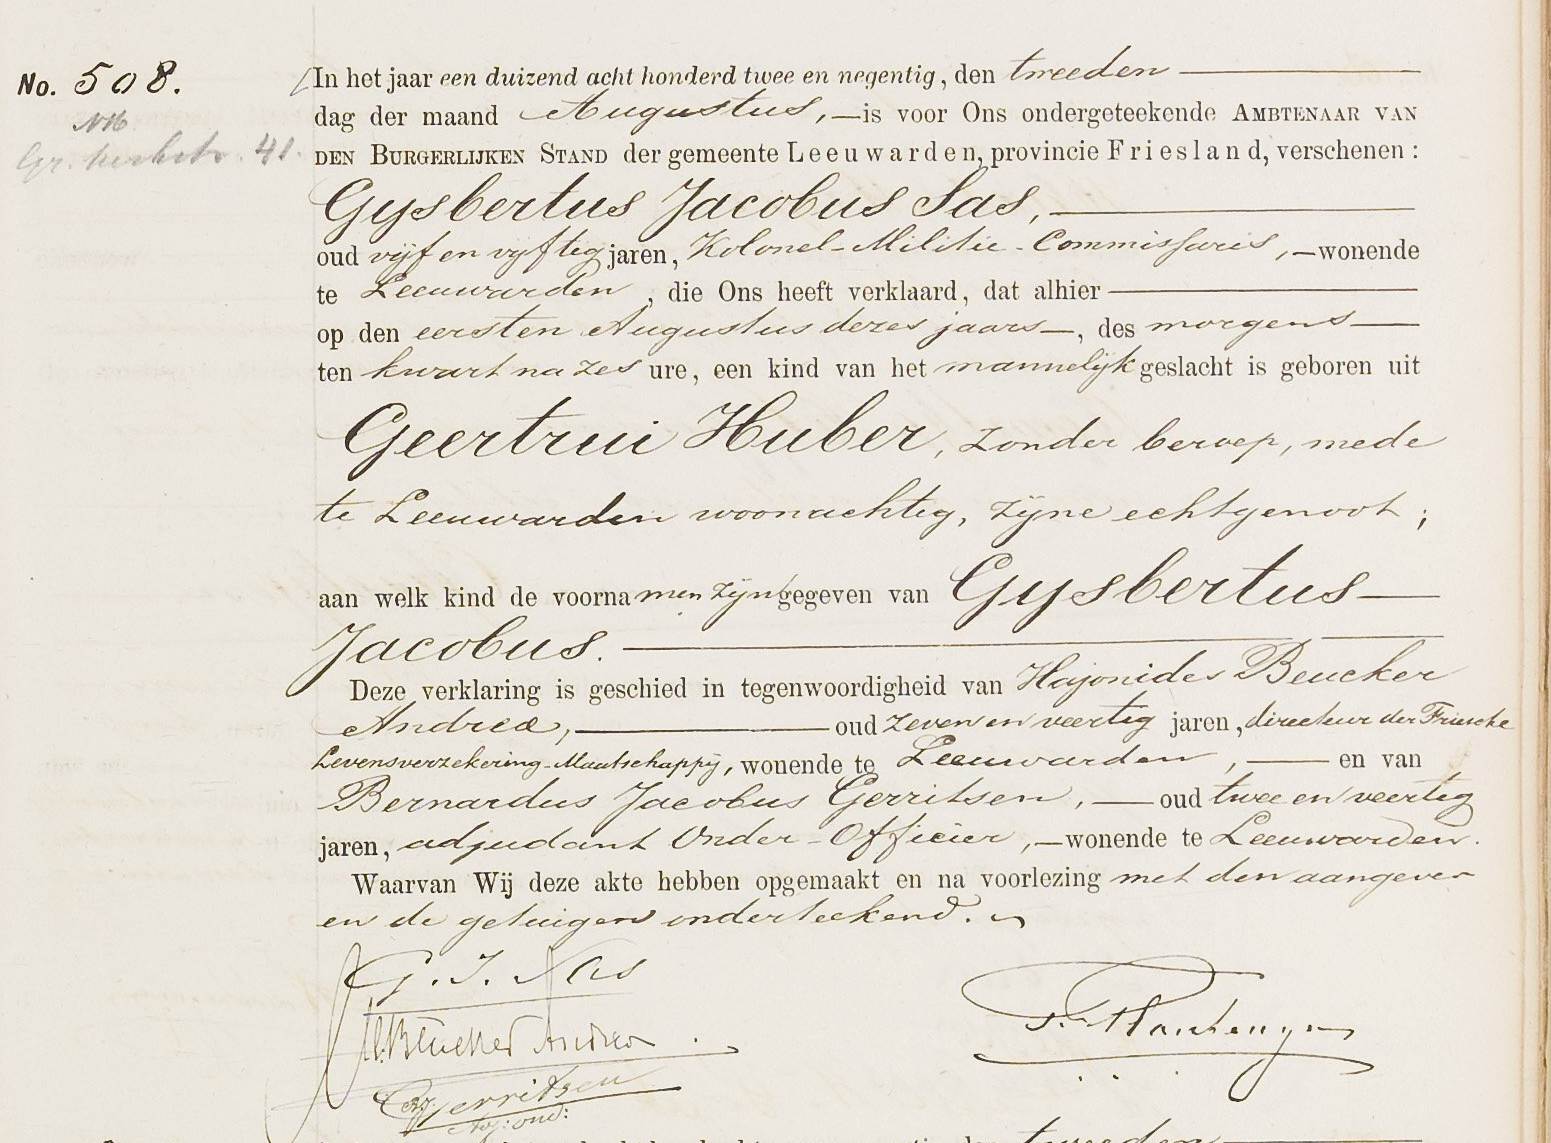 No. 508.
In het jaar een duizend acht honderd twee en negentig, den tweeden
dag der maand Augustus, is voor Ons ondergeteekende AMBTENAAR VAN
41.
DEN BURGERLIJKEN STAND der gemeente Leeuwarden, provincie Friesland, verschenen:
Gysbertus Jacobus Sas,
oud vijf en vyftig jaren, Kolonel-Militie-Commissaris, wonende
te Leeuwarden, die Ons heeft verklaard, dat alhier
op den eersten Augustus dezes jaars, des morgens
ten kwart na zes ure, een kind van het mannelijk geslacht is geboren uit
Geertrui Huber, zonder beroep, mede
te Leeuwarden woonachtig, zijne echtgenoot;
aan welk kind de voornamen zijn gegeven van Gysbertus
Jacobus.
Deze verklaring is geschied in tegenwoordigheid van Hajonides Beucker
Andreæ, oud zeven en veertig jaren, directeur der Friesche
Levensverzekering-Maatschappij, wonende te Leeuwarden, en van
Bernardus Jacobus Gerritsen, oud twee en veertig
jaren, adjudant Onder-Officier, wonende te Leeuwarden.
Waarvan Wij deze akte hebben opgemaakt en na voorlezing met den aangever
en de getuigen onderteekend.
G. J. Sas
H. Beucker Andreæ
Gerritsen
Adj: ond:
tweeden